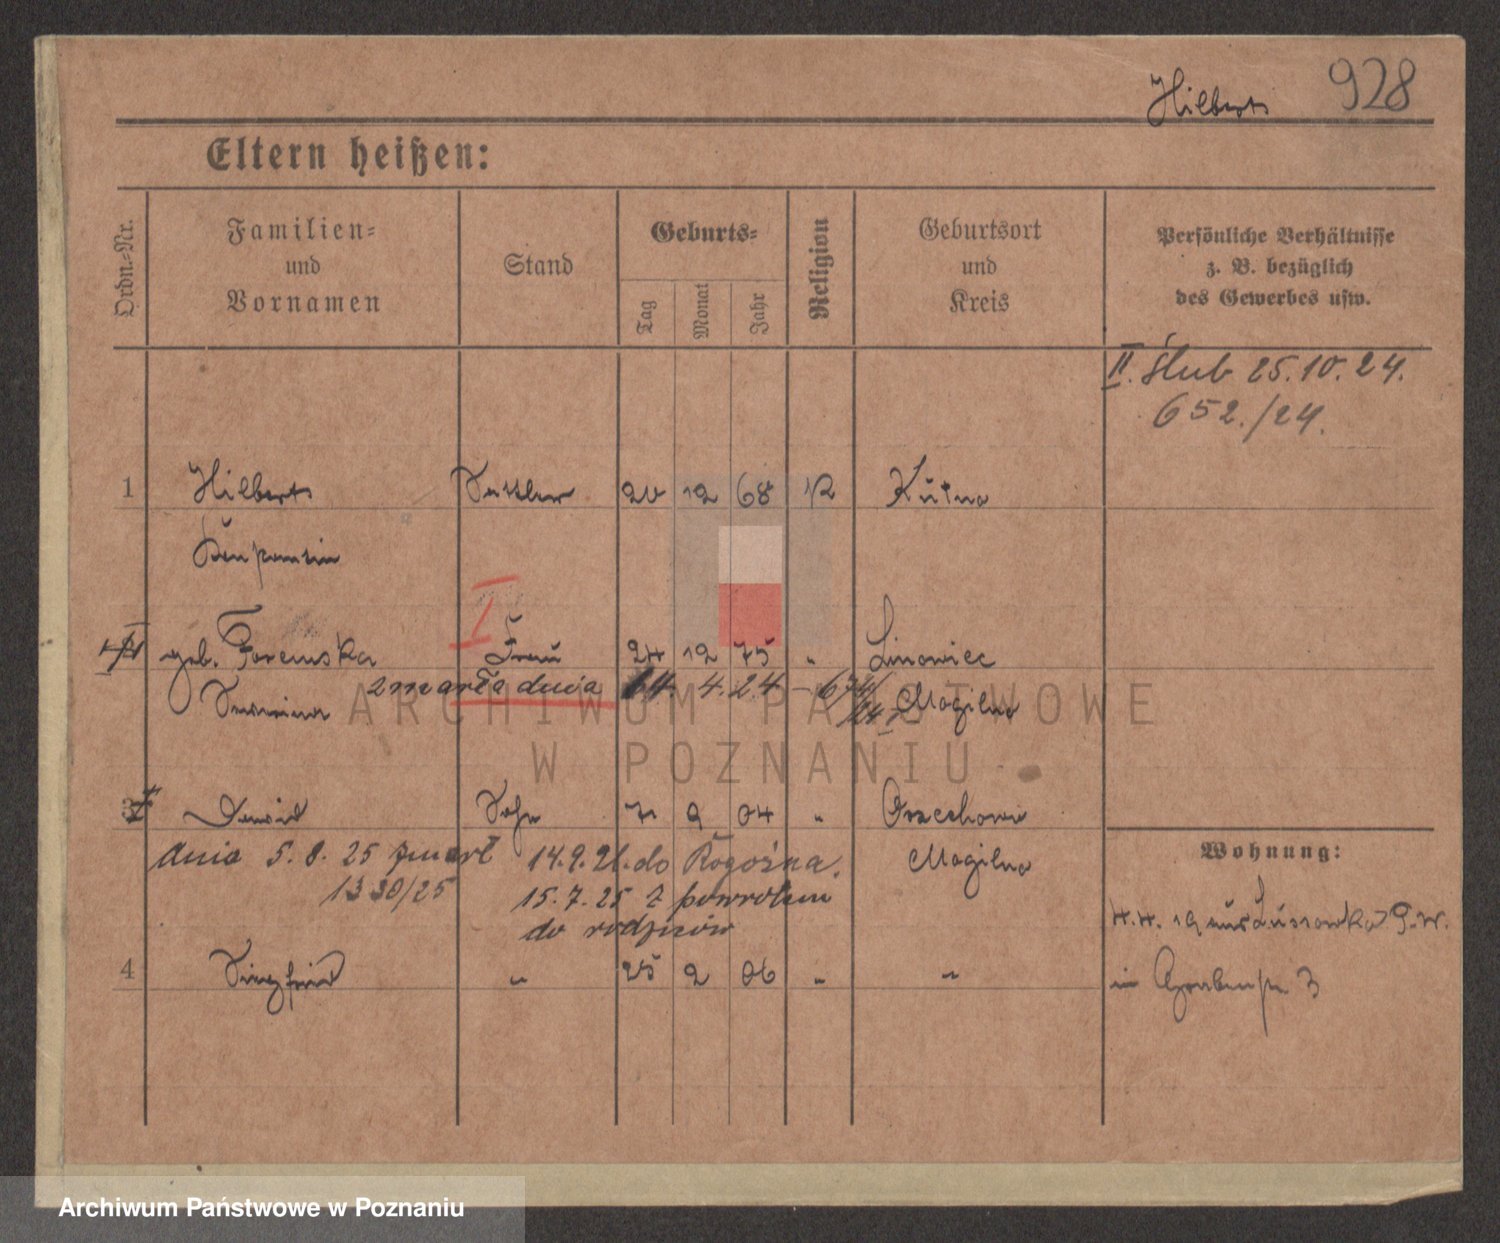 Hilbert 928
Eltern heißen:
Ordn.-Nr.
Familien-
und
Vornamen
Stand
Geburts-
Tag
Monat
Jahr
Religion
Geburtsort
und
Kreis
Persönliche Verhältnisse
z. B. bezüglich
des Gewerbes usw.
II. ślub 25.10.24.
652./24.
1 Hilbert Sattler 20 12 68 Kutno
geb. Foremska Frau 24 12 75 " Linowiec
I
zmarła dnia 14. 4. 24 - 674/
24 Mogilno
3 Sohn 7 9 04 " Orzechowo
dnia 5. 8. 25 zmarł 14.9.21. do Rogoźna. Mogilno
1330/25 15.7.25 z powrotem
do rodziców
4 Siegfried " 25 2 06 " "
Wohnung:
4.4.19 aus P.W.
in Grabenstr 3
ARCHIWUM PAŃSTWOWE
W POZNANIU
Archiwum Państwowe w Poznaniu